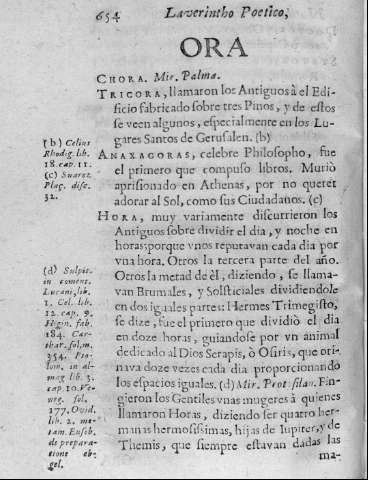 654 Laverintho Poetico,
ORA
CHORA. Mir. Palma.
TRICORA, llamaron los Antiguos à el Edi-
ficio fabricado sobre tres Pinos, y de estos
se veen algunos, especialmente en los Lu-
gares Santos de Gerusalen. (b)
ANAXAGORAS, celebre Philosopho, fue
el primero que compuso libros. Muriò
aprisionado en Athenas, por no querer
adorar al Sol, como sus Ciudadanos. (c)
HORA, muy variamente discurrieron los
Antiguos sobre dividir el dia, y noche en
horas; porque vnos reputavan cada dia por
vna hora. Otros la tercera parte del año.
Otros la metad de èl, diziendo, se llama-
van Brumales, y Solsticiales dividiendole
en dos iguales partes: Hermes Trimegisto,
se dize, fue el primero que dividiò el dia
en doze horas, guiandose por vn animal
dedicado al Dios Serapis, ò Osiris, que ori-
nava doze vezes cada dia proporcionando
los espacios iguales. (d) Mir. Prot. silan. Fin-
gieron los Gentiles vnas mugeres à quienes
llamaron Horas, diziendo ser quatro her-
manas hermosissimas, hijas de Iupiter, y de
Themis, que siempre estavan dadas las
ma-
(b) Celius
Rhodig. lib.
18. cap. 11.
(c) Suarez
Plag. disc.
32.
(d) Sulpit.
in coment.
Lucani, lib.
1. Cel. lib.
12. cap. 9.
Higin. fab.
184. Car-
thar. fol. m.
354. Pto-
lom. in al-
mag lib. 3.
cap. 10. Fe-
urg. fol.
177. Ovid.
lib. 2. me-
tam. Euseb.
de prepara-
tione eb-
gel.